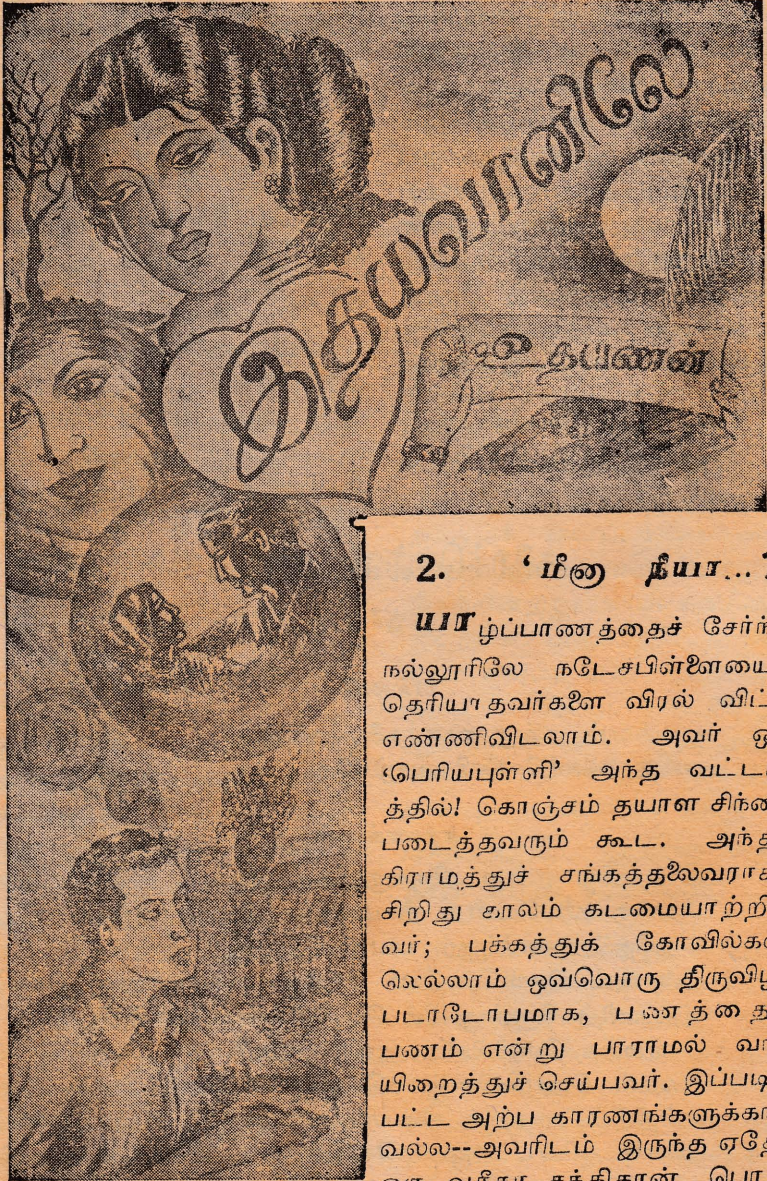 இதயவானிலே
உதயணன்
2. ‘மீனா நீயா...?
யாழ்ப்பாணத்தைச் சேர்ந்
நல்லூரிலே நடேசபிள்ளையை
தெரியாதவர்களை விரல் விட்
எண்ணிவிடலாம். அவர் ஒ
‘பெரியபுள்ளி’ அந்த வட்டா
த்தில்! கொஞ்சம் தயாள சிந்தை
படைத்தவரும் கூட. அந்த
கிராமத்துச் சங்கத்தலைவராக
சிறிது காலம் கடமையாற்றி
வர்; பக்கத்துக் கோவில்கள
லெல்லாம் ஒவ்வொரு திருவிழ
படாடோபமாக, பணத்தை
பணம் என்று பாராமல் வா
யிறைத்துச் செய்பவர். இப்படி
பட்ட அற்ப காரணங்களுக்கா
வல்ல--அவரிடம் இருந்த ஏதே
ஒரு வசீகர சக்திதான் பொ